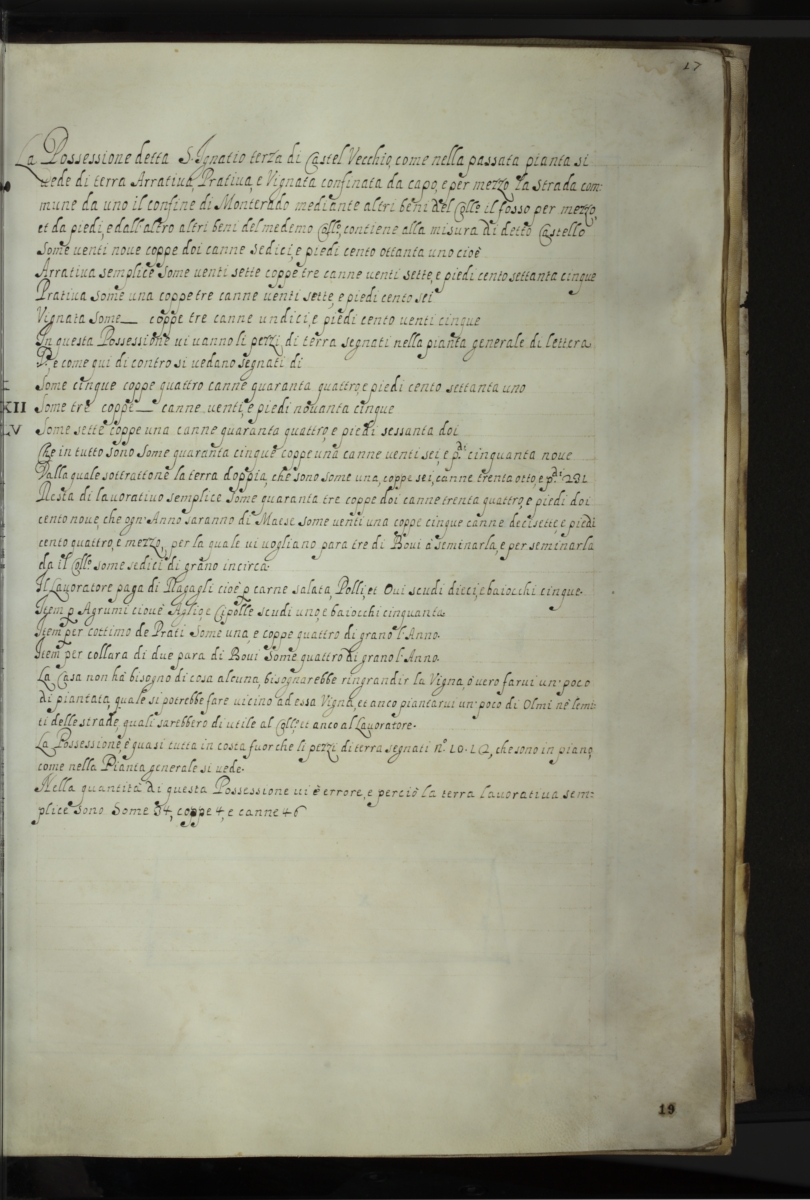 17
La Possessione detta S. Ignatio terza di Castel Vecchio, come nella passata pianta si
vede di terra Arratiua, Pratiua, e Vignata confinata da capo, e per mezzo la strada com:
mune da uno il confine di Monterado mediante altri beni del Coll.º il fosso per mezzo,
et da piedi, e dall'altro altri beni del medemo Coll.º, contiene alla misura di detto Castello
some uenti noue coppe doi canne sedici, e piedi cento ottanta uno cioè
Arratiua semplice some uenti sette coppe tre canne uenti sette, e piedi cento settanta cinque
Pratiua some una coppe tre canne uenti sette, e piedi cento sei
Vignata some— coppe tre canne undici, e piedi cento uenti cinque
In questa Possessione ui uanno li pezzi di terra segnati nella pianta generale di lettera
e come qui di contro si uedano segnati di
Some cinque coppe quattro canne quaranta quattro, e piedi cento settanta uno
XII Some tre coppe— canne uenti, e piedi nouanta cinque
LV Some sette coppe una canne quaranta quattro, e piedi sessanta doi
Che in tutto sono some quaranta cinque coppe una canne uenti sei, e p.di cinquanta noue
Dalla quale sottrattone la terra doppia, che sono some una, coppe sei, canne trenta otto, e p.di 281
Resta di lauoratiuo semplice some quaranta tre coppe doi canne trenta quattro, e piedi doi
cento noue, che ogn'Anno saranno di Maese some uenti una coppe cinque canne decisette, e piedi
cento quattro, e mezzo, per la quale ui uogliano para tre di Boui à seminarla, e per seminarla
da il Coll.º some sedici di grano incirca.
Il Lauoratore paga di Regagli cioè p carne salata, Polli, et Oui scudi dieci, e baiocchi cinque.
Item p Agrumi cioue Aglio, e Cipolle scudi uno, e baiocchi cinquanta.
Item per cottimo de Prati some una, e coppe quattro di grano l'Anno.
Item per collara di due para di Boui some quattro di grano l'Anno.
La Casa non hà bisogno di cosa alcuna, bisognarebbe ringrandir la Vigna, ò uero farui un poco
di piantata, quale si potrebbe fare uicino ad essa Vigna, et anco piantarui un poco di Olmi nè limi:
ti delle strade, quali sarebbero di utile al Coll.º, et anco al Lauoratore.
La Possessione, è quasi tutta in costa fuor che li pezzi di terra segnati n.º 10. 12, che sono in piano,
come nella Pianta generale si uede.
Nella quantità di questa Possessione ui è errore, e perciò la terra lauoratiua sem:
plice sono Some 34, coppe 4, e canne 46
19